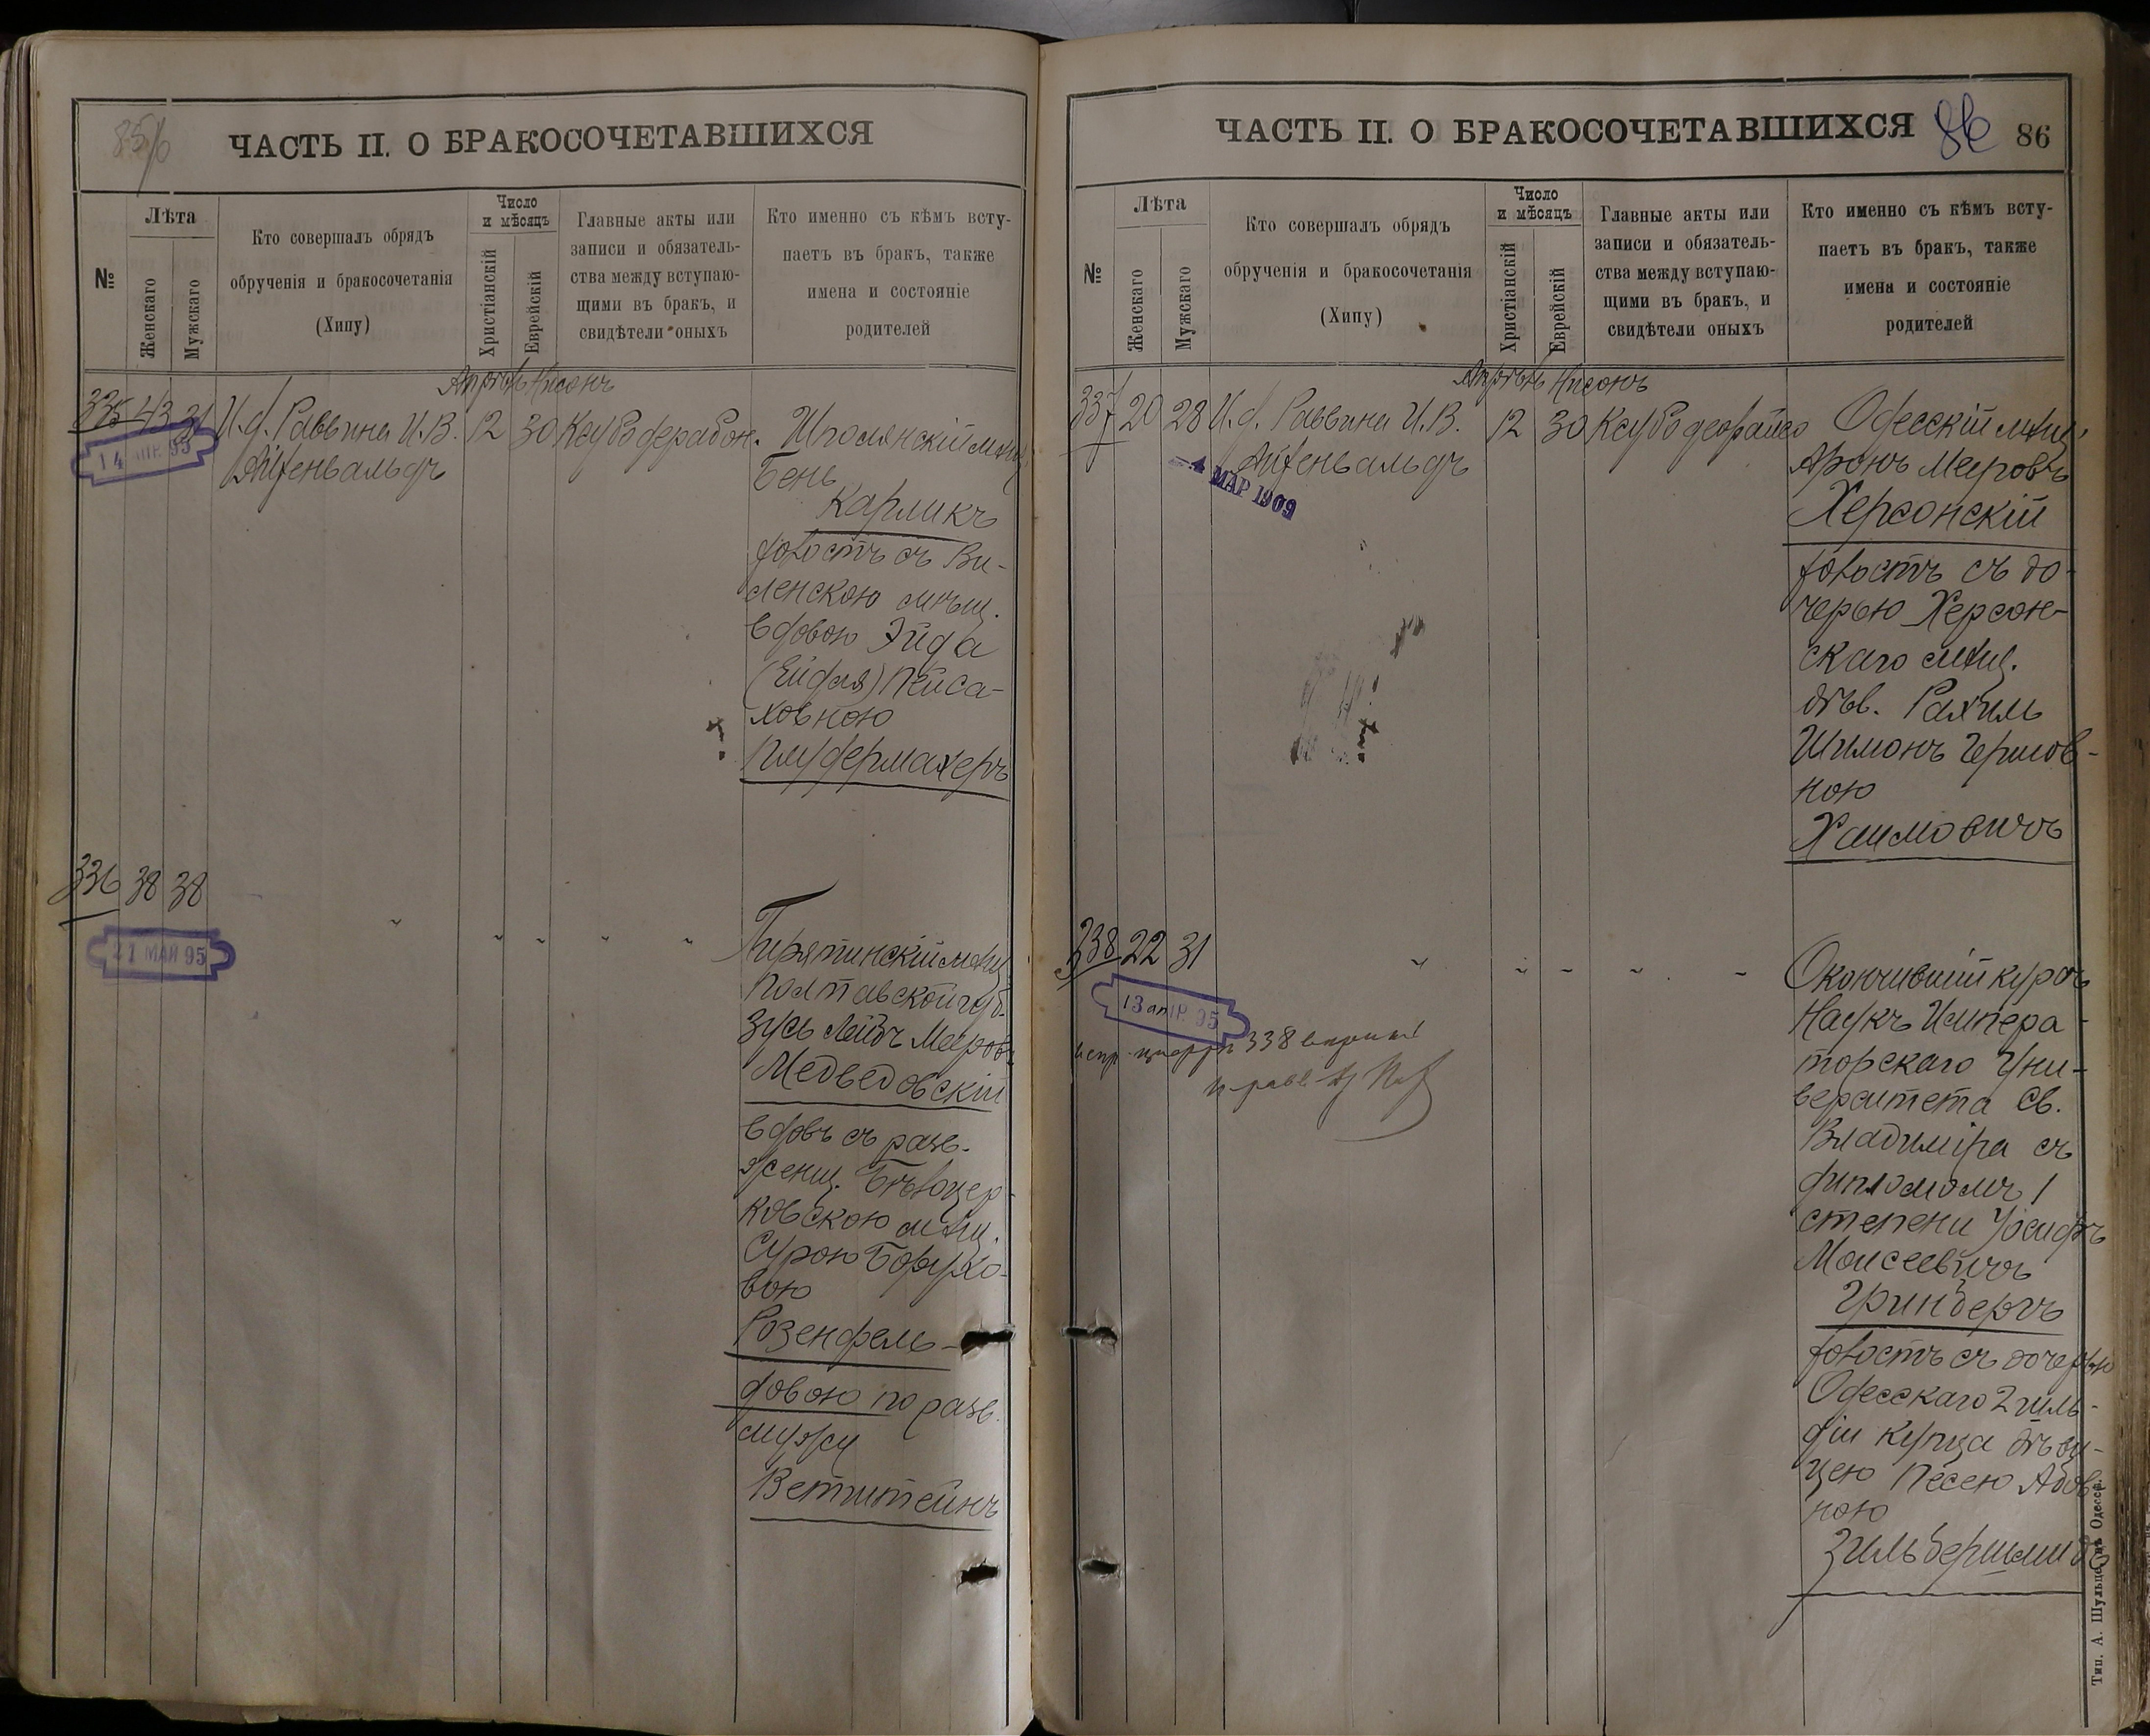 85/6
ЧАСТЬ II. О БРАКОСОЧЕТАВШИХСЯ
№
Лѣта
Женскаго
Мужскаго
Кто совершалъ обрядъ
обрученія и бракосочетанія
(Хипу)
Число
и мѣсяцъ
Христіанскій
Еврейскій
Главные акты или
записи и обязатель-
ства между вступаю-
щими въ бракъ, и
свидѣтели оныхъ
Кто именно съ кѣмъ всту-
паетъ въ бракъ, также
имена и состояніе
родителей
Апрѣль Нисонъ
335 43 31 И.д. Раввина И.В. 12 30 Шполянскій мѣщ.
14 АПР. 95
Айзенвальдъ
Бень
Карликъ
холостъ съ Ви-
ленскою мѣщ.
вдовою Эйда
(Ейдля) Пейса-
ховною
Пудермахеръ
336 38 38
21 МАЙ 95
Пирятинскій мѣщ.
Полтавской губ.
Зусь Лейбъ Мееров.
Медведовскій
вдовъ съ разв.
женщ. Бѣлоцер-
ковскою мѣщ.
Сурою Борухо-
вою
Розенфель-
довою по разв.
мужу
Ветштейнъ
ЧАСТЬ II. О БРАКОСОЧЕТАВШИХСЯ 86 86
№
Лѣта
Женскаго
Мужскаго
Кто совершалъ обрядъ
обрученія и бракосочетанія
(Хипу)
Число
и мѣсяцъ
Христіанскій
Еврейскій
Главные акты или
записи и обязатель-
ства между вступаю-
щими въ бракъ, и
свидѣтели оныхъ
Кто именно съ кѣмъ всту-
паетъ въ бракъ, также
имена и состояніе
родителей
Апрѣль Нисонъ
337 20 28 И.д. Раввина И.В. 12 30 Одесскій мѣщ.
Айзенвальдъ
-4 МАР 1909
Аронъ Мееровъ
Херсонскій
холостъ съ до-
черью Херсон-
скаго мѣщ.
дѣв. Рахиль
Шимонъ Гершов-
ною
Хаимовичъ
338 22 31
13 АПР. 95
испр. цифра 338 вѣрить
Окончившій курсъ
Наукъ Импера-
торскаго Уни-
верситета Св.
Владиміра съ
дипломомъ 1
степени Іосифъ
Моисеевичъ
Гринбергъ
холостъ съ дочерью
Одесскаго 2 гиль-
діи купца дѣви-
цею Песею Абов-
ною
Зильбершмидъ
Тип. А. Шульце въ Одессѣ.